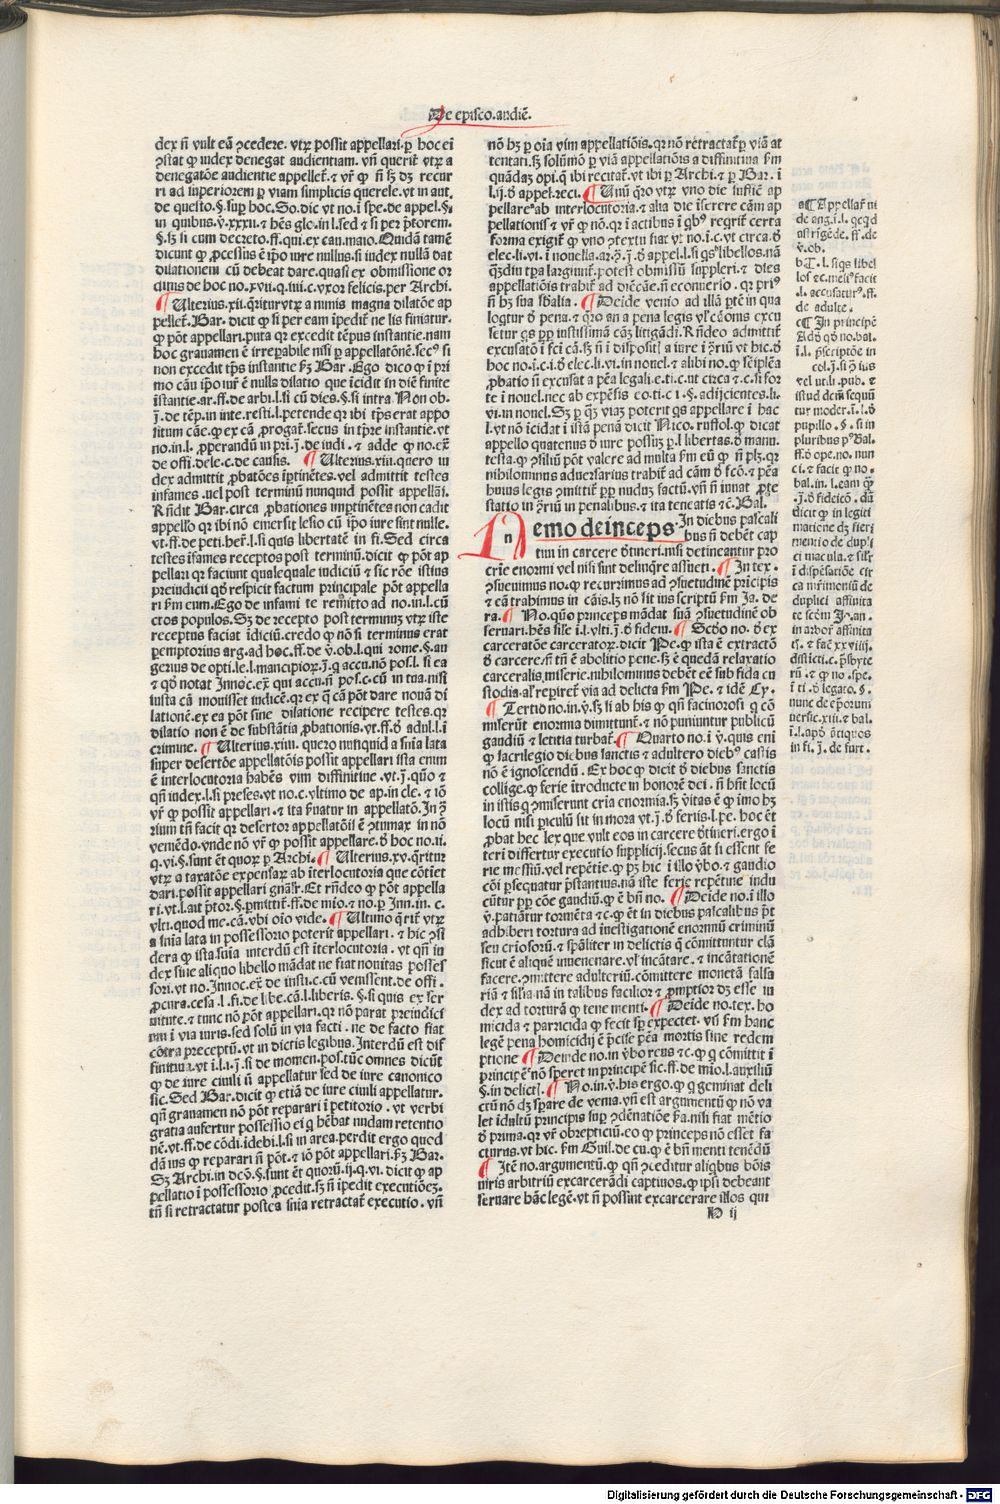 De episco.audiē.
dex ñ vult eā ꝯcedere. vtꝝ possit appellari. ꝑ hoc eī
ꝯstat ꝙ iudex denegat audientiam. vñ querit̃ vtꝝ a
denegatōe audientie appellet̃. ⁊ vr̃ ꝙ ñ sꝫ dꝫ recur
ri ad superiorem ꝑ viam simplicis querele. vt in aut.
de questo. §. suꝑ hoc. So. dic vt no. ī spe. de appel. §.
in quibus. ꝟ. xxxii. ⁊ hẽs glo. in. l. sed ⁊ si per p̃torem.
§. sꝫ si cum decreto. ff. qui. ex cau. maio. Quidā tamē
dicunt ꝙ ꝓcessus ē ip̄o iure nullus. si iudex nullā dat
dilationem cū debeat dare. quasi ex obmissione or
dinis de hoc no. xvii. q. iiii. c. vxor felicis. per Archi.
¶ Ulterius. xii. q̄ritur vtꝝ a nimis magna dilatōe ap
pellet̃. Bar. dicit ꝙ si per eam īpedit̃ ne lis finiatur.
ꝙ pōt appellari. puta qꝛ excedit tẽpus instantie. nam
hoc grauamen ē irreꝑabile nisi ꝑ appellatōnē. secꝰ si
non excedit tp̄s instantie ẜm Bar. Ego dico ꝙ ī pri
mo cāu ip̄o iur̃ ē nulla dilatio que īcidit in diē finite
īstantie. ar. ff. de arbi. l. si cū dies. §. si intra. Non ob.
j. de tẽp. in inte. resti. l. petende qꝛ ibi tp̄s erat appo
situm cāe. ꝙ ex cā ꝓrogat̃. secus in tp̄re instantie. vt
no. in. l. ꝓperandū in pri. j. de iudi. ⁊ adde ꝙ no. ex̃
de offi. dele. c. de causis. ¶ Ulterius. xiii. quero iu
dex admittit ꝓbatōes īꝑtinētes. vel admittit testes
infames. uel post terminū nunquid possit appellāi.
Rñdit Bar. circa ꝓbationes imꝑtinētes non cadit
appello qꝛ ibi nō emersit lesio cū ip̄o iure sint nulle.
vt. ff. de peti. her̃. l. si quis libertatē in fi. Sed circa
testes īfames receptos post terminū. dicit ꝙ pōt ap
pellari qꝛ faciunt qualequale iudiciū ⁊ sic rōe istius
preiudicii qd̄ respicit factum principale pōt appella
ri ẜm eum. Ego de infami te remitto ad no. in. l. cū
ctos populos. Sꝫ de recepto post terminuꝫ vtꝝ iste
receptus faciat īdiciū. credo ꝙ nō si terminus erat
peremptorius arg. ad hoc. ff. de ꝟ. ob. l. qui rome. §. au
gerius de opti. le. l. mancipioꝝ. j. q̄ accu. nō pos. l. si ea
⁊ qd̄ notat Innoc. ex̃. qui accu. ñ pos. c. cū in tua. nisi
iusta cā mouisset iudicē. qꝛ ex q̄ cā pōt dare nouā di
lationē. ex ea pōt sine dilatione recipere testes. qꝛ
dilatio non ē de substātia ꝓbationis. vt. ff. d̄ adul. l. ī
crimine. ¶ Ulterius. xiiii. quero nunquid a sn̄ia lata
super desertōe appellatōis possit appellari ista enim
ē interlocutoria habēs vim diffinitiue. vt. j. q̄uo ⁊
qñ iudex. l. si preses. vt no. c. vltimo de ap. in cle. ⁊ iō
vr̃ ꝙ possit appellari. ⁊ ita ẜuatur in appellatō. In ꝯ̄
rium tñ facit qꝛ desertor appellatōis ē ꝯtumax in nō
veniēdo. vnde nō vr̃ ꝙ possit appellare. d̄ hoc no. ii.
q. vi. §. sunt ēt quoꝝ ꝑ Archi. ¶ Ulterius. xv. q̄ritur
vtꝝ a taxatōe expensaꝝ ab īterlocutoria que cōtiet
dari. possit appellari gnālr̃. Et rñdeo ꝙ pōt appella
ri. vt. l. ait p̄tor. §. ꝑmittit̃. ff. de mio. ⁊ no. ꝑ Inn. in. c.
vlti. quod me. cā. vbi oīo vide. ¶ Ultimo q̄rit̃ vtꝝ
a sn̄ia lata in possessorio poterit appellari. ⁊ hic ꝯsi
dera ꝙ ista sn̄ia interdū est īterlocutoria. vt qñ iu
dex sine aliquo libello mādat ne fiat nouitas posses
sori. vt no. Innoc. ex̃. de insti. c. cū venissent. de offi.
ꝓcura. cesa. l. fi. de libe. cā. l. liberis. §. si quis ex ser
uitute. ⁊ tunc nō pōt appellari. qꝛ nō parat preiudici
um ī via iuris. sed solū in via facti. ne de facto fiat
cōtra preceptū. vt in dictis legibus. Interdū est dif
finitiua. vt ī. l. i. j. si de momen. pos. tūc omnes dicūt
ꝙ de iure ciuili ñ appellatur sed de iure canonico
sic. Sed Bar. dicit ꝙ etiā de iure ciuili appellatur.
qñ grauamen nō pōt reparari ī petitorio. vt verbi
gratia aufertur possessio ei q̄ hēbat nudam retentio
nē. vt. ff. de cōdi. īdebi. l. si in area. perdit ergo quod
dā ius ꝙ reparari ñ pōt. ⁊ iō pōt appellari. ẜm Bar.
Sꝫ Archi. in dcō. §. sunt ēt quorū. ii. q. vi. dicit ꝙ ap
pellatio ī possessorio ꝓcedit. sꝫ ñ īpedit executiōeꝫ.
tñ si retractatur postea sn̄ia retractat̃ executio. vñ
nō hꝫ ꝑ oīa vim appellatiōis. qꝛ nō retractat̃ ꝑ viā at
tentati. sꝫ solūmō ꝑ viā appellatiōis a diffinitiua ẜm
quādaꝫ opi. q̄ ibi recitat̃. vt ibi ꝑ Archi. ⁊ ꝑ Bar. ī
l. ij. d̄ appel. reci. ¶ Unū q̄ro vtꝝ vno die suffic̄ ap
pellareˢ ab interlocutoria. ⁊ alia die īserere cām ap
pellationis ⁊ vr̃ ꝙ nō. qꝛ ī actibus ī qbꝰ reqrit̃ certa
forma exigit̃ ꝙ vno ꝯtextu fiat vt no. ī. c. vt circa. d̄
elec. li. vi. ī nouella. ar. ꝯ̄. j. d̄ appel. l. si qsᵇ libellos. nā
qꝫdiu tpa largiunt̃. potest obmissū suppleri. ⁊ dies
appellatōis trahit̃ ad diēcāe. ñ econuerio. qꝛ priꝰ
ñ hꝫ sua sb̄alia. ¶ Deīde venio ad illā ptē in qua
loqtur d̄ pena. ⁊ q̄ro an a pena legis vl̓ canonis excu
setur qs ꝓp iustissimā cāꝫ litigādi. Rñdeo admittit̃
excusatō ī fci cā. sꝫ ñ ī dispositi a iure ī ꝯ̄riū vt hic. d̄
hoc no. ī. c. i. d̄ elec. li. vi. in nouel. ⁊ alibi no. ꝙ sēplēa
ꝓbatio ñ excusat a pēa legali. e. ti. c. ut circa ⁊ c. si for
te ī nouel. nec ab expēsis eo. ti. c. i. §. adijcientes. li.
vi. in nouel. Sꝫ ꝑ qꝫ viaꝫ poterit qs appellare ī hac
l. vt nō īcidat ī istā penā dicit Nico. ruffol. ꝙ dicat
appello quatenus d̄ iure possuꝫ. ꝑ l. libertas. d̄ manu.
testa. ꝙ ꝯsiliū pōt valere ad multa ẜm eū ꝙ ñ plꝫ. qꝛ
nihilominus aduersarius trahit̃ ad cām d̄ fcō. ⁊ pēa
huius legis ꝯmittit̃ ꝑꝑ nuduꝫ factū. vñ ñ iuuat ꝓte
statio in ꝯ̄riū in penalibus. ⁊ ita teneatis ⁊ē. Bal.
Nemo deinceps In diebus pascali
bus ñ debēt cap
tiui in carcere d̄tineri. nisi detineantur pro
cri̅e enormi vel nisi sint delinq̄re assueti. ¶ In tex.
ꝯsueuimus no. ꝙ recurrimus ad ꝯsuetudinē pricipis
⁊ eā trahimus in cāis. lꝫ nō sit ius scriptū ẜm Ja. de
ra. ¶ No. quō princeps mādat suā ꝯsuetudinē ob
seruari. hẽs sile ī. l. vlti. j. d̄ fideiu. ¶ Scd̄o no. d̄ ex
carceratōe carceratoꝝ. dicit Pe. ꝙ ista ē extractō
d̄ carcere. ñ tñ ē abolitio pene. sꝫ ē quedā relaxatio
carceralis miserie. nihilominus debēt eē sub fida cu
stodia. al̓ reꝑiret̃ via ad delicta ẜm Pe. ⁊ idē Cy.
¶ Tertio no. in. ꝟ. sꝫ si ab his ꝙ qñ facinorosi q̄ cō
miserūt enormia dimittunt̃. ⁊ nō puniuntur publicū
gaudiū ⁊ letitia turbat̃. ¶ Quarto no. ī ꝟ. quis eni
ꝙ sacrilegio diebus sanctis ⁊ adultero diebꝰ castis
nō ē ignoscendū. Ex hoc ꝙ dicit d̄ diebus sanctis
collige. ꝙ ferie itroducte in honorē dei. ñ hn̄t locū
in istis q̄ ꝯmiserunt crīa enormia. sꝫ vitas ē ꝙ imo hꝫ
locū nisi ꝑiculū sit in mora vt. j. d̄ feriis. l. pe. hoc ēt
ꝓbat hec lex que vult eos in carcere d̄tineri. ergo ī
teri differtur executio supplicij. secus āt si essent fe
rie messiū. vel repētie. ꝙ pꝫ hic ī illo ꝟbo. ⁊ gaudio
cōi ꝓsequatur p̄stantius. nā iste ferie repētine indu
cūtur ꝑꝑ cōe gaudiū. ꝙ ē bñ no. ¶ Deīde no. ī illo
ꝟ. patiātur tormēta ⁊ c. ꝙ ēt in diebus pascalibus p̄t
adhiberi tortura ad inestigationē enormiū criminū
seu criosorū. ⁊ sp̄aliter in delictis q̄ cōmittuntur clā
sicut ē aliquē uenenare. vl̓ incātare. ⁊ incātationē
facere. ꝯmittere adulteriū. cōmittere monetā falsa
riā ⁊ silīa nā in talibus facilior ⁊ ꝓmptior dꝫ esse iu
dex ad torturā ꝙ tene menti. ¶ Deīde no. tex. ho
micida ⁊ parricida ꝙ fecit sp̄ expectet. vñ ẜm hanc
legē pena homicidij ē p̄cise pēa mortis sine redem
ptione ¶ Deinde no. in ꝟbo reus ⁊ c. ꝙ q̄ cōmittit ī
principē nō speret in principē sic. ff. de mio. l. auxiliū
§. in delictl. ¶ No. in. ꝟ. his ergo. ꝙ q̄ geminat deli
ctū nō dꝫ sparare de venia. vñ est argumētū ꝙ nō va
let īdultū principis suꝑ ꝯdēnatiōe ẜa. nisi fiat mētio
d̄ prima. qꝛ vr̃ obreptīciū. eo ꝙ princeps nō esset fa
cturus. vt hic. ẜm Guil. de cu. ꝙ ē bñ menti tenēdū
¶ Itē no. argumentū. ꝙ qñ ꝯceditur aliqbus bōis
uiris arbitriū excarcerādi captiuos. ꝙ ipsi debeant
seruare hāc legē. vt ñ possint excarcerare illos qui
N ij
a¶ Appellat̃ ni
de ang. i. l. qcqd
astrigēde. ff. de
ꝟ. ob.
b¶. l. siqs libel
los ec. meliꝰ facit
.l. accusaturꝰ. ff.
de adulte.
c¶ In principē
Adꝟ qd̄ no. bal.
ī. l. p̃scriptōe in
col. j. si ꝯ̄ ius
vel uti. li. pub. ⁊
istud dem sequū
tur moder. ī. l. d̄
pupillo. §. si in
pluribus pꝰ Bal.
ff. d̄ ope. no. nun
ci. ⁊ facit ꝙ no.
bal. in. l. eam q̄
.j. d̄ fideicō. dā
dicit ꝙ in legiti
matione dꝫ fieri
mentio de dupl̓i
ci macula. ⁊ sil̓r
ī dispēsatiōe cir
ca mr̃imoniū de
duplici affinita
te scd̄m Jo. an.
in arbor̃ affinita
ti. ⁊ fac̃ xxviij.
distictī. c. p̃sbyte
rū. ⁊ ꝙ no. spe.
ī ti. d̄ legato. §.
nunc de epōrum
uersic. xiii. ⁊ bal.
ī. l. apō ātiquos
in fi. j. de furt.
Digitalisierung gefördert durch die Deutsche Forschungsgemeinschaft - DFG